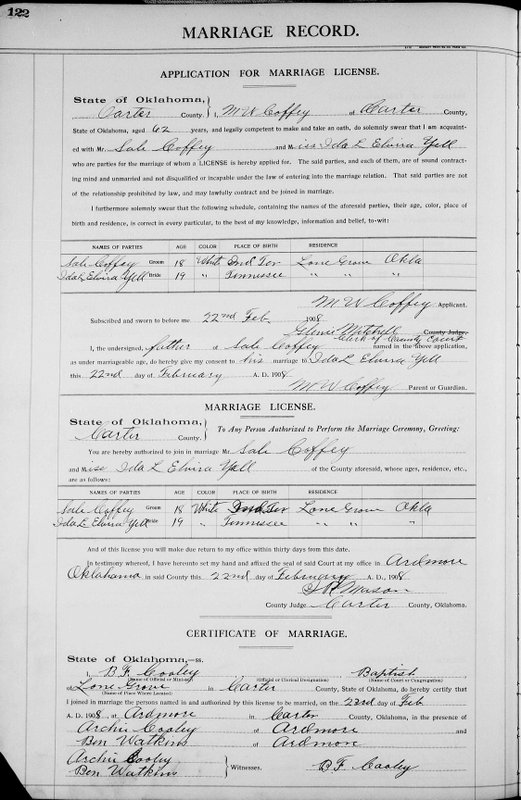 122
MARRIAGE RECORD.
APPLICATION FOR MARRIAGE LICENSE.
State of Oklahoma,
Carter County. I, M W Coffey of Carter County,
State of Oklahoma, aged 62 years, and legally competent to make and take an oath, do solemnly swear that I am acquaint-
ed with Mr. Sale Coffey and Miss Ida L Elvira Yell
who are parties for the marriage of whom a LICENSE is hereby applied for. The said parties, and each of them, are of sound contract-
ing mind and unmarried and not disqualified or incapable under the law of entering into the marriage relation. That said parties are not
of the relationship prohibited by law, and may lawfully contract and be joined in marriage.
I furthermore solemnly swear that the following schedule, containing the names of the aforesaid parties, their age, color, place of
birth and residence, is correct in every particular, to the best of my knowledge, information and belief, to-wit:
NAMES OF PARTIES AGE COLOR PLACE OF BIRTH RESIDENCE
Sale Coffey Groom 18 White Ind Ter Lone Grove Okla
Ida L Elvira Yell Bride 19 " Tennessee " " "
M W Coffey Applicant.
Subscribed and sworn to before me 22nd Feb 1908
Mitchell County Judge.
Clerk of County Court
I, the undersigned, father of Sale Coffey named in the above application,
as under marriageable age, do hereby give my consent to his marriage to Ida L Elvira Yell
this 22nd day of February A. D. 1908
M W Coffey Parent or Guardian.
MARRIAGE LICENSE.
State of Oklahoma,
Carter County. To Any Person Authorized to Perform the Marriage Ceremony, Greeting:
You are hereby authorized to join in marriage Mr. Sale Coffey
and Miss Ida L Elvira Yell of the County aforesaid, whose ages, residence, etc.,
are as follows:
NAMES OF PARTIES AGE COLOR PLACE OF BIRTH RESIDENCE
Sale Coffey Groom 18 White Ind Ter Lone Grove Okla
Ida L Elvira Yell Bride 19 " Tennessee " " "
And of this license you will make due return to my office within thirty days from this date.
In testimony whereof, I have hereunto set my hand and affixed the seal of said Court at my office in Ardmore
Oklahoma in said County this 22nd day of February A. D., 1908
Mason
County Judge Carter County, Oklahoma.
CERTIFICATE OF MARRIAGE.
State of Oklahoma,—ss.
I, B. F. Cooley Baptist
(Name of Official or Minister) (Official or Clerical Designation) (Name of Court or Congregation)
of Lone Grove in Carter County, State of Oklahoma, do hereby certify that
(Name of Place Where Located)
I joined in marriage the persons named in and authorized by this license to be married, on the 23rd day of Feb
A. D. 1908, at Ardmore in Carter County, in Oklahoma, in the presence of
Archie Cooley of Ardmore and
Ben Watkins of Ardmore
Archie Cooley
Ben Watkins Witnesses. B F Cooley